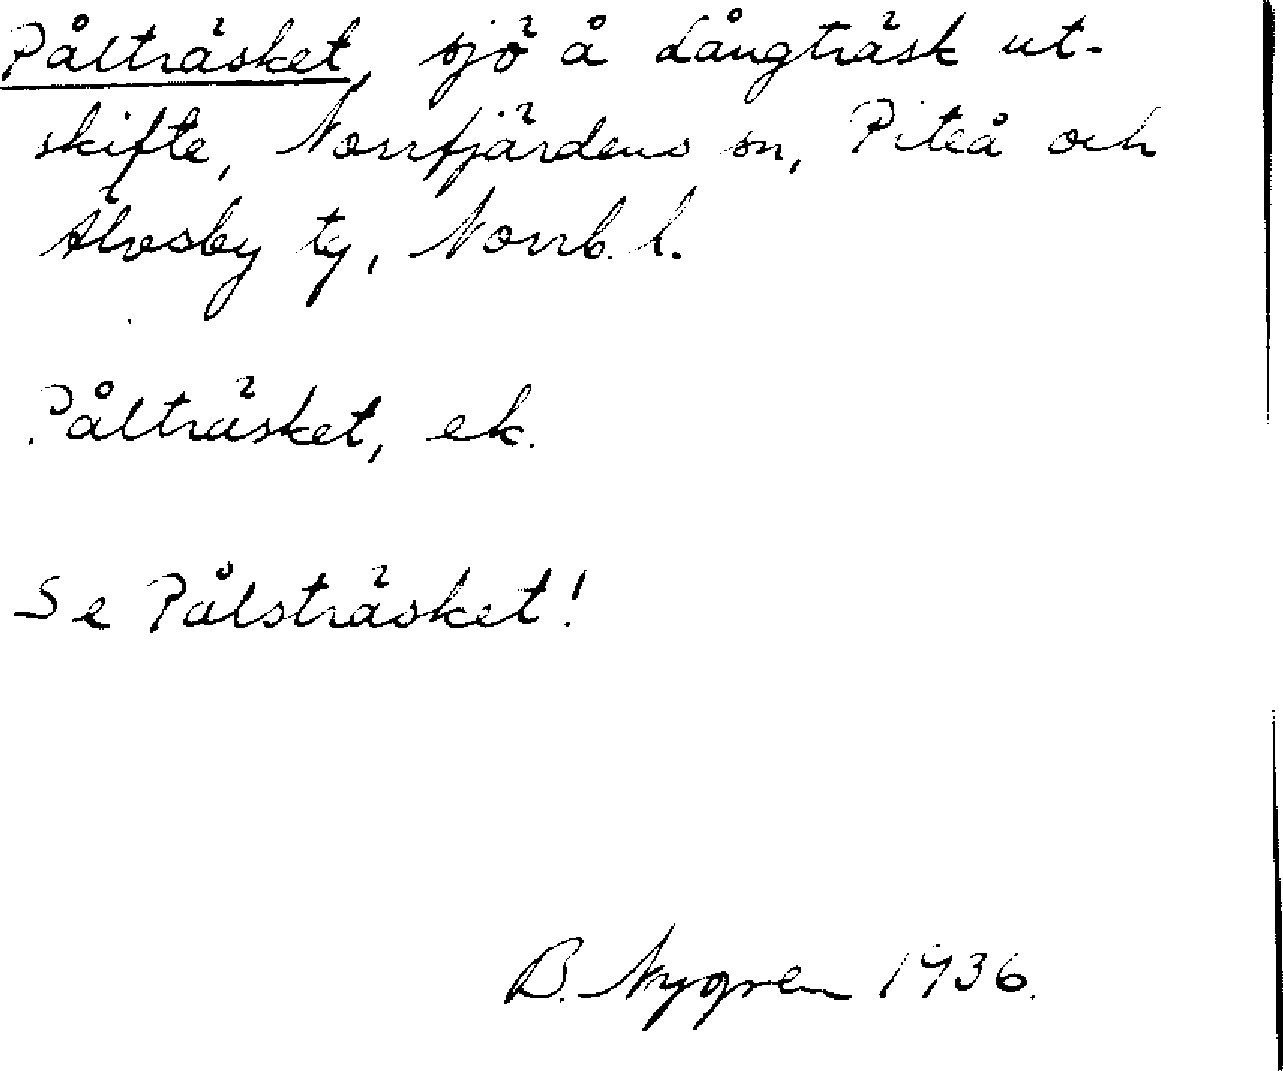 Pålträsket, sjö å Långträsk ut-
skifte, Norrfjärdens sn, Piteå och
Älvsby tg, Norrb. l.
Pålträsket, ek.
Se Pålsträsket!
B. Nygren 1936.